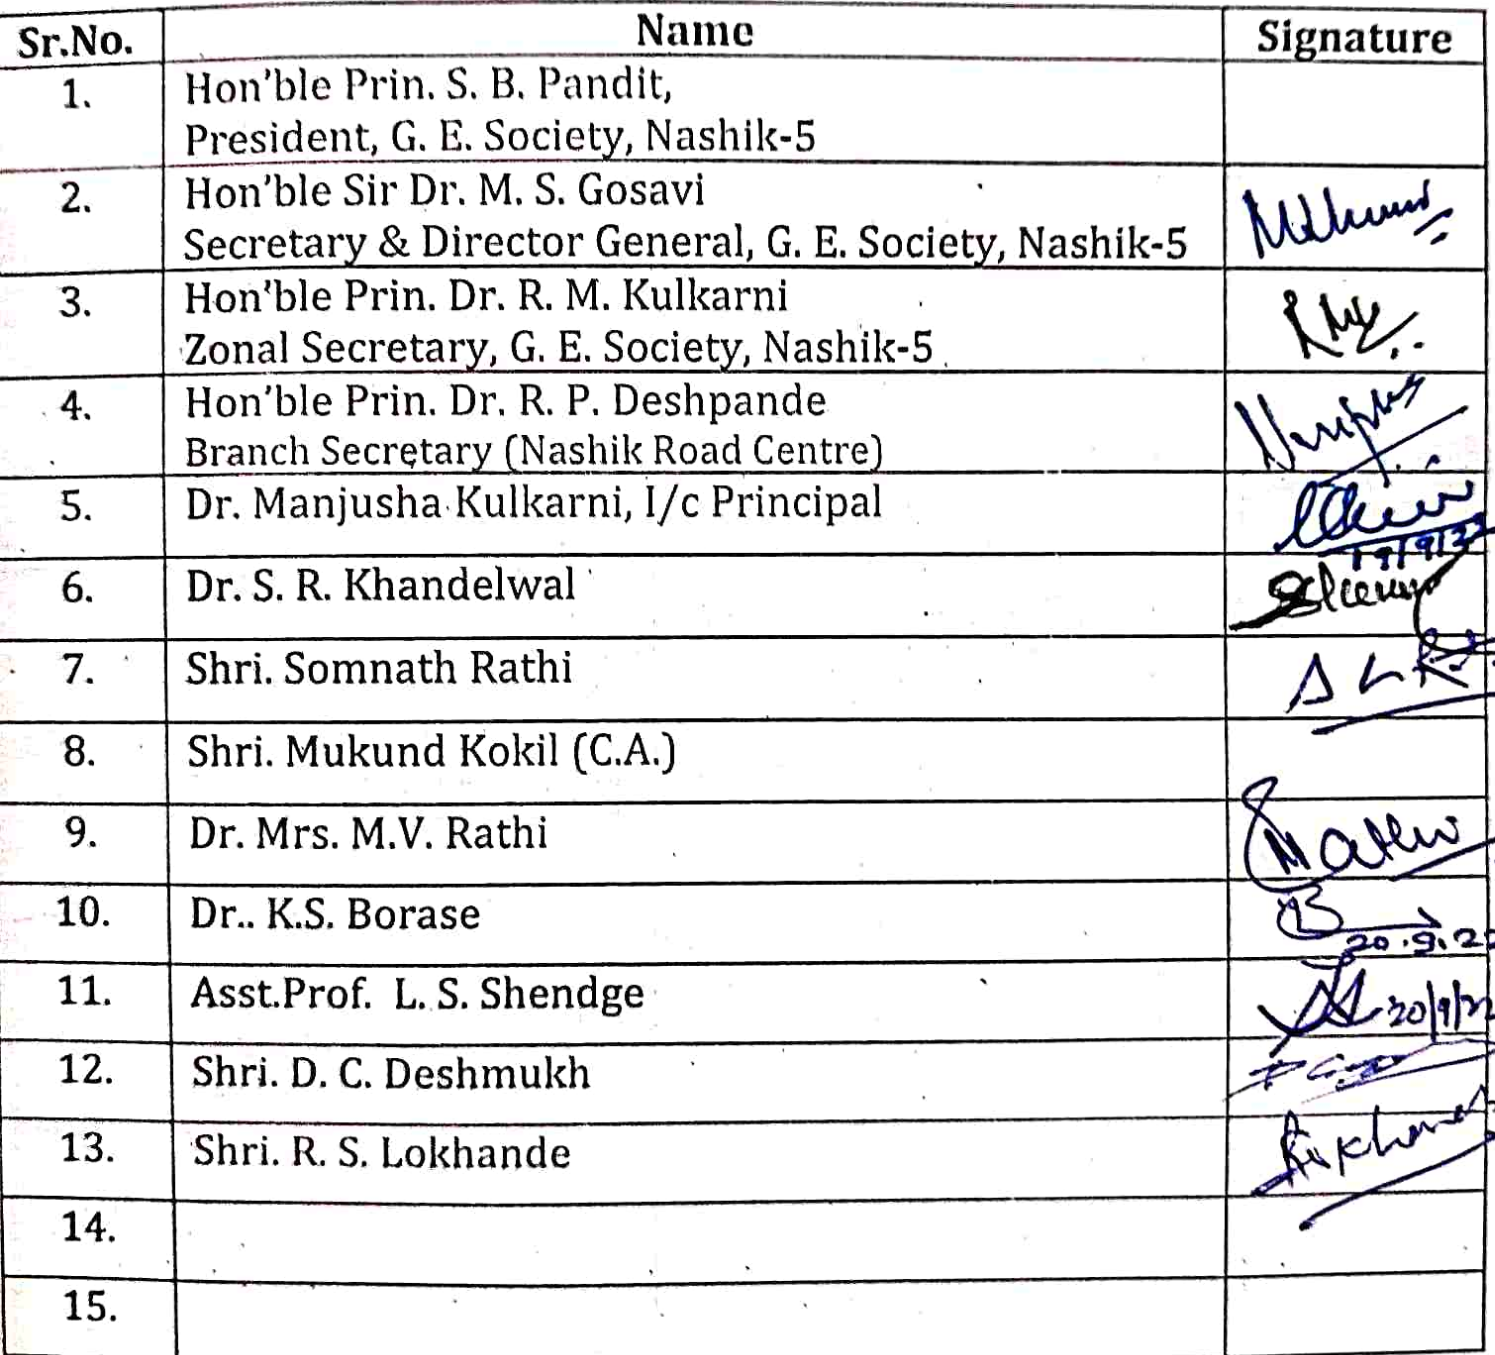 Sr.No. Name Signature
1. Hon'ble Prin. S. B. Pandit,
President, G. E. Society, Nashik-5
2. Hon'ble Sir Dr. M. S. Gosavi
Secretary & Director General, G. E. Society, Nashik-5
3. Hon'ble Prin. Dr. R. M. Kulkarni
Zonal Secretary, G. E. Society, Nashik-5
4. Hon'ble Prin. Dr. R. P. Deshpande
Branch Secretary (Nashik Road Centre)
5. Dr. Manjusha Kulkarni, I/c Principal
6. Dr. S. R. Khandelwal
7. Shri. Somnath Rathi
8. Shri. Mukund Kokil (C.A.)
9. Dr. Mrs. M.V. Rathi
10. Dr.. K.S. Borase
20.9.22
11. Asst.Prof. L. S. Shendge
20/9/22
12. Shri. D. C. Deshmukh
13. Shri. R. S. Lokhande
14.
15.